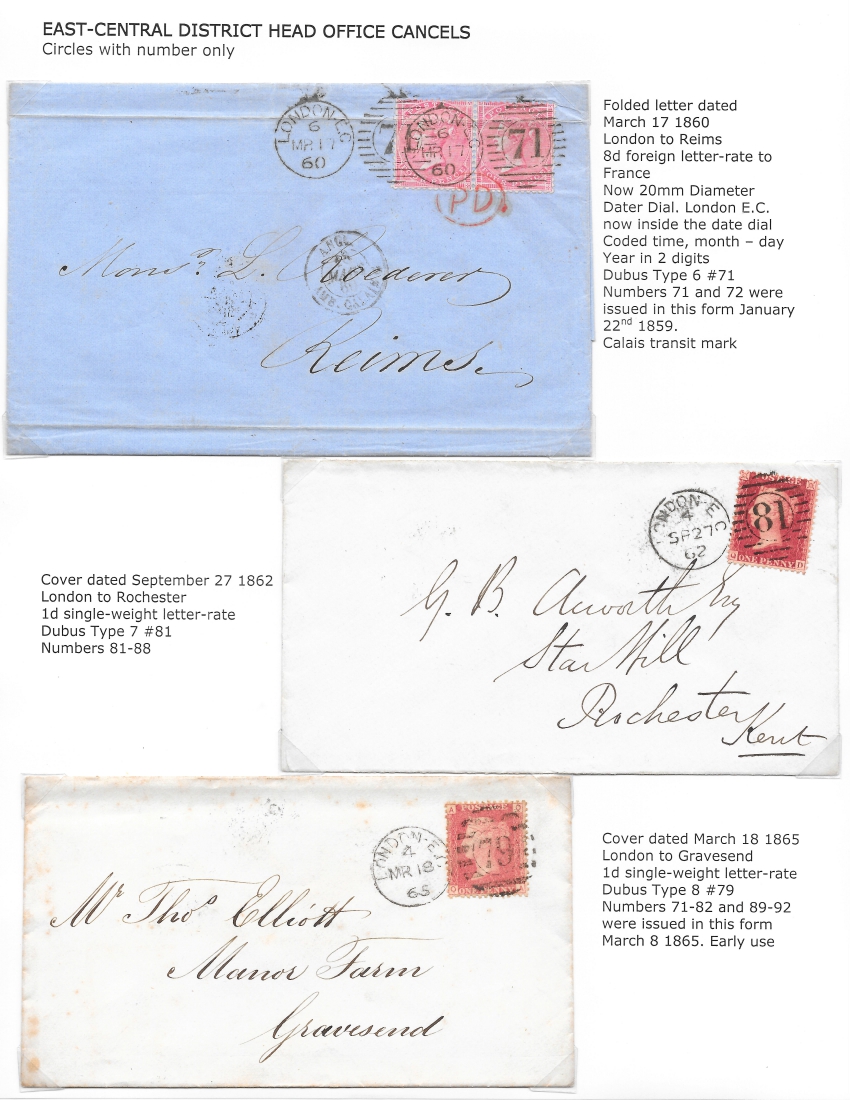 EAST-CENTRAL DISTRICT HEAD OFFICE CANCELS
Circles with number only
Folded letter dated
March 17 1860
London to Reims
8d foreign letter-rate to
France
Now 20mm Diameter
Dater Dial. London E.C.
now inside the date dial
Coded time, month – day
Year in 2 digits
Dubus Type 6 #71
Numbers 71 and 72 were
issued in this form January
22nd 1859.
Calais transit mark
LONDON-E.C
6
MR 17
60
71
LONDON-E.C
6
MR 17
60
71
PD
ANGL.
Monsr. L. Roederer
Reims.
Cover dated September 27 1862
London to Rochester
1d single-weight letter-rate
Dubus Type 7 #81
Numbers 81-88
LONDON-E.C
4
SP 27
62
81
ONE PENNY
G. B. Acworth Esq
Star Hill
Rochester
Kent
LONDON-E.C
4
MR 18
65
79
Mr Thos Elliott
Manor Farm
Gravesend
Cover dated March 18 1865
London to Gravesend
1d single-weight letter-rate
Dubus Type 8 #79
Numbers 71-82 and 89-92
were issued in this form
March 8 1865. Early use